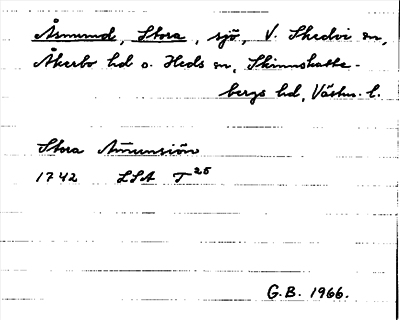 Åsmund, Stora, sjö, V. Skedvi sn,
Åkerbo hd o. Heds sn, Skinnskatte-
bergs hd, Västm. l.
Stora Åmunsiön
1742 LSA T 25
G.B. 1966.